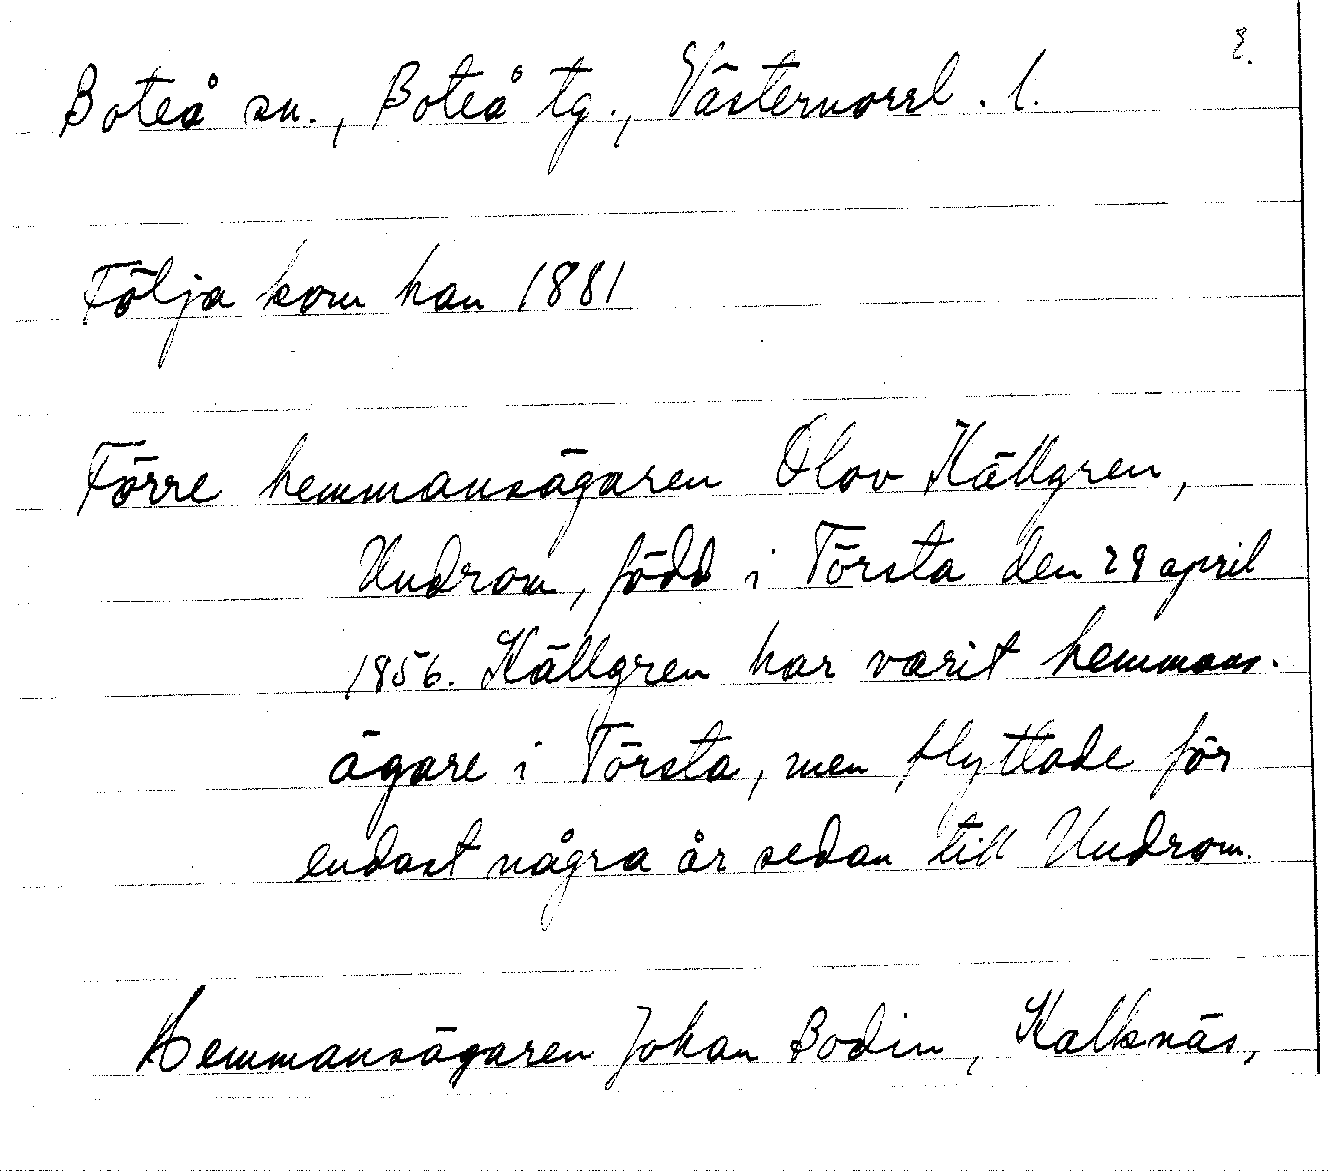 2.
Boteå sn., Boteå tg., Västernorrl. l.
Följa kom han 1881
Förre hemmansägaren Olov Källgren,
Undrom, född i Törsta den 28 april
1856. Källgren har varit hemmans-
ägare i Törsta, men flyttade för
endast några år sedan till Undrom.
Hemmansägaren Johan Bodin, Kalknäs,